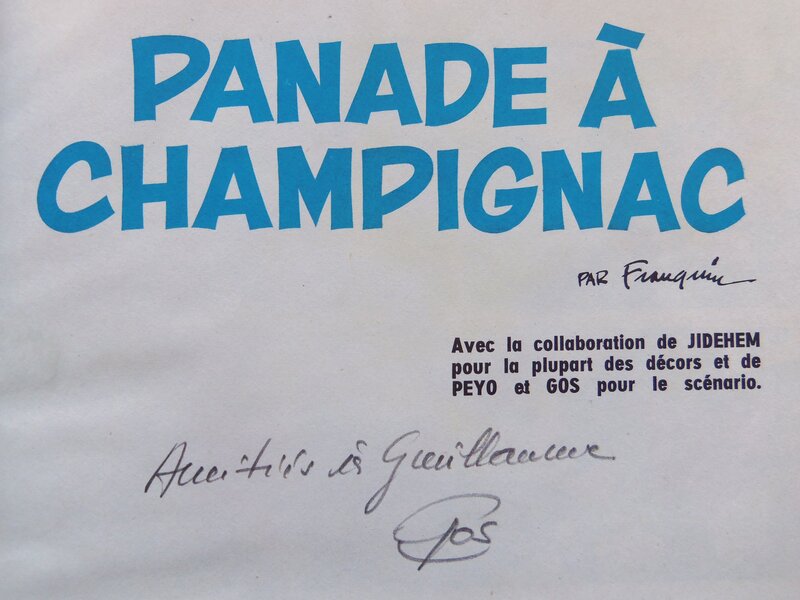 PANADE À
CHAMPIGNAC
PAR Franquin
Avec la collaboration de JIDEHEM
pour la plupart des décors et de
PEYO et GOS pour le scénario.
Amitiés à Guillaume
Gos